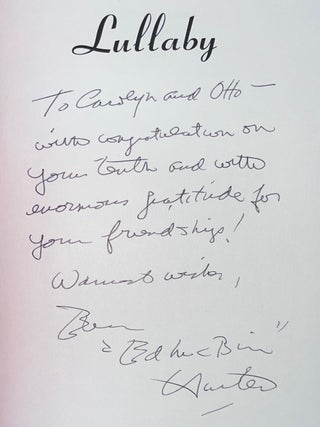 Lullaby
To Carolyn and Otto —
with congratulation on
your tenth and with
enormous gratitude for
your friendships!
Warmest wishes,
Evan
"Ed McBain"
Hunter